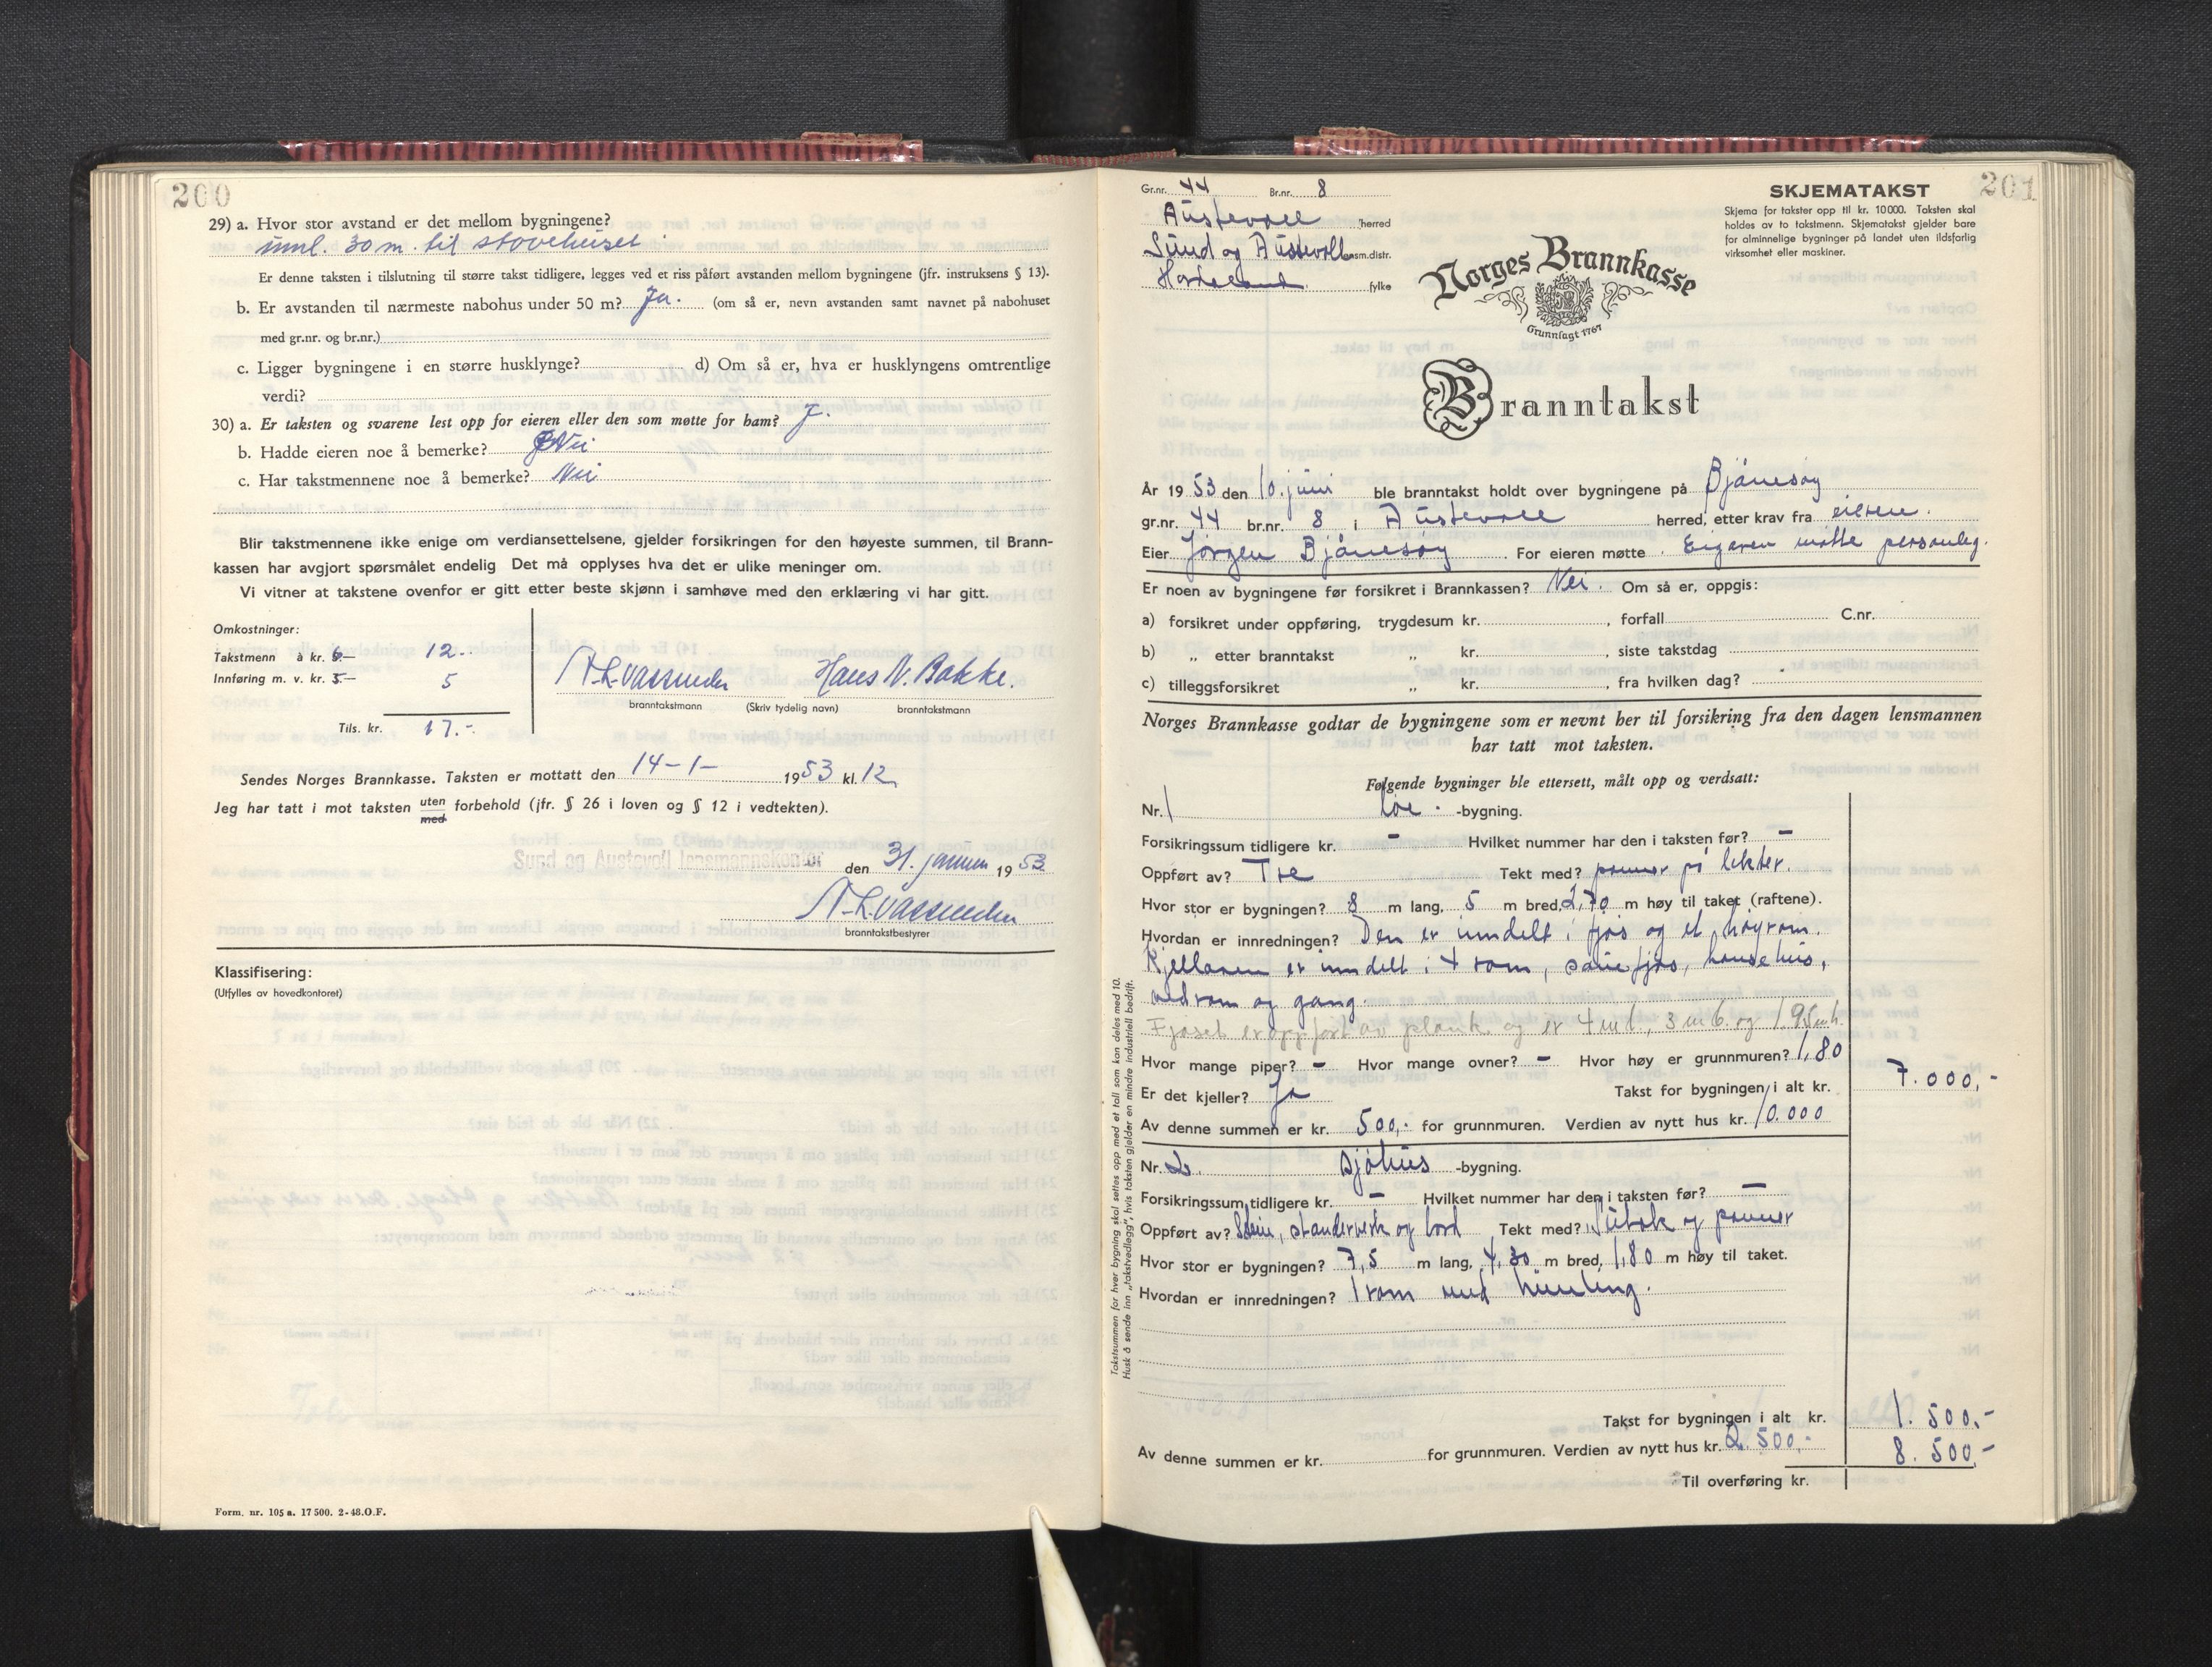 200
29) a. Hvor stor avstand er det mellom bygningene?
innl. 30 m. til stovehuset
Er denne taksten i tilslutning til større takst tidligere, legges ved et riss påført avstanden mellom bygningene (jfr. instruksens § 13).
b. Er avstanden til nærmeste nabohus under 50 m? Ja. (om så er, nevn avstanden samt navnet på nabohuset
med gr.nr. og br.nr.)
c. Ligger bygningene i en større husklynge? d) Om så er, hva er husklyngens omtrentlige
verdi?
30) a. Er taksten og svarene lest opp for eieren eller den som møtte for ham? J.
b. Hadde eieren noe å bemerke? Nei
c. Har takstmennene noe å bemerke? Nei
Blir takstmennene ikke enige om verdiansettelsene, gjelder forsikringen for den høyeste summen, til Brann-
kassen har avgjort spørsmålet endelig Det må opplyses hva det er ulike meninger om.
Vi vitner at takstene ovenfor er gitt etter beste skjønn i samhøve med den erklæring vi har gitt.
Omkostninger:
Takstmenn à kr. 6.— 12.-
Innføring m. v. kr. 5.— 5
Tils. kr. 17.-
Hans N. Bakke.
branntakstmann (Skriv tydelig navn) branntakstmann
Sendes Norges Brannkasse. Taksten er mottatt den 14-1- 1953 kl. 12
Jeg har tatt i mot taksten uten forbehold (jfr. § 26 i loven og § 12 i vedtekten).
med
Sund og Austevoll lensmannskontor den 31. januar 1953
branntakstbestyrer
Klassifisering:
(Utfylles av hovedkontoret)
Form. nr. 105 a. 17 500. 2-48. O.F.
Gr.nr. 44 Br.nr. 8
Austevoll herred
Sund og Austevoll lensm.distr.
Hordaland fylke
SKJEMATAKST 201
Skjema for takster opp til kr. 10 000. Taksten skal
holdes av to takstmenn. Skjematakst gjelder bare
for alminnelige bygninger på landet uten ildsfarlig
virksomhet eller maskiner.
Norges Brannkasse
Grunnlagt 1767
Branntakst
År 1953 den 10. juni ble branntakst holdt over bygningene på Bjånesøy
gr.nr. 44 br.nr. 8 i Austevoll herred, etter krav fra eieren.
Eier Jørgen Bjånesøy For eieren møtte Eigaren møtte personleg.
Er noen av bygningene før forsikret i Brannkassen? Nei. Om så er, oppgis:
a) forsikret under oppføring, trygdesum kr. , forfall C.nr.
b) „ etter branntakst „ kr. , siste takstdag
c) tilleggsforsikret „ kr. , fra hvilken dag?
Norges Brannkasse godtar de bygningene som er nevnt her til forsikring fra den dagen lensmannen
har tatt mot taksten.
Følgende bygninger ble ettersett, målt opp og verdsatt:
Nr. 1 Løe -bygning.
Forsikringssum tidligere kr. – Hvilket nummer har den i taksten før? –
Oppført av? Tre Tekt med? panner på lekter.
Hvor stor er bygningen? 8 m lang, 5 m bred, 2,70 m høy til taket (raftene).
Hvordan er innredningen? Den er inndelt i fjøs og et høyrom.
Kjellaren er inndelt i 4 rom, sauefjøs, hønsehus,
vedrom og gang.
Fjøset er oppført av plank og er 4 m l., 3 m b. og 1.95 m h.
Hvor mange piper? – Hvor mange ovner? – Hvor høy er grunnmuren? 1,80
Er det kjeller? Ja Takst for bygningen i alt kr. 7.000,-
Av denne summen er kr. 500,- for grunnmuren. Verdien av nytt hus kr. 10.000
Nr. 2. sjøhus -bygning.
Forsikringssum tidligere kr. – Hvilket nummer har den i taksten før? –
Oppført av? Stein, standerverk og bord Tekt med? Sutak og panner
Hvor stor er bygningen? 7,5 m lang, 4,30 m bred, 1,80 m høy til taket.
Hvordan er innredningen? 1 rom med himling.
Takst for bygningen i alt kr. 1.500,-
Av denne summen er kr. for grunnmuren. Verdien av nytt hus kr. 2.500,- 8.500,-
Til overføring kr.
Takstsummen for hver bygning skal settes opp med et tall som kan deles med 10.
Husk å sende inn „takstvedlegg", hvis taksten gjelder en mindre industriell bedrift.